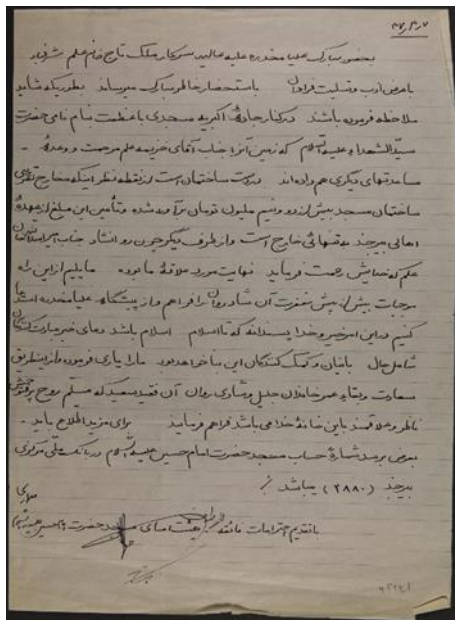 ۴۷٫۳٫۷
بحضور مبارک علیا مخدره علیه عالیه سرکار ملک تاج خانم علم
با عرض ادب و تسلیت فراوان باستحضار خاطر مبارک میرساند بطوریکه شاید
ملاحظه فرموده باشند در کنار جادهٔ اکبریه مسجدی با عظمت بنام نامی حضرت
سیدالشهداء علیه السلام که زمین آنرا جناب آقای خزیمه علم مرحمت و وعدهٔ
مساعدتهای دیگری هم داده‌اند در دست ساختمان است از نقطه نظر اینکه مخارج تقریبی
ساختمان مسجد بیش از دو و نیم ملیون تومان برآورد شده و تأمین این مبلغ از عهدهٔ
اهالی بیرجند به تنهائی خارج است و از طرف دیگر چون روانشاد جناب امیر اسدالله خان
علم که خدایش رحمت فرماید نهایت مورد علاقهٔ ما بوده مایلیم از این راه
موجبات بیش از پیش مغفرت آن شادروان را فراهم و از پیشگاه علیا مخدره استدعا
کنیم در این امر خیر و خدا پسندانه که تا اسلام اسلام باشد دعای خیر عبادت کنندگان
شامل حال بانیان و کمک کنندگان این بنا خواهد بود ما را یاری فرموده و از اینطریق
سعادت و بقاء عمر خاندان جلیل و شادی روان آن فقید سعید که مسلم روح پرفتوحش
ناظر و علاقمند باین خانهٔ خدا می باشد فراهم فرمایید برای مزید اطلاع باید
بعرض برسد شمارهٔ حساب مسجد حضرت امام حسین علیه السلام در بانک ملی مرکزی
بیرجند (۲۸۸۰) میباشد
با تقدیم احترامات فائقه هیئت امنای مسجد حضرت